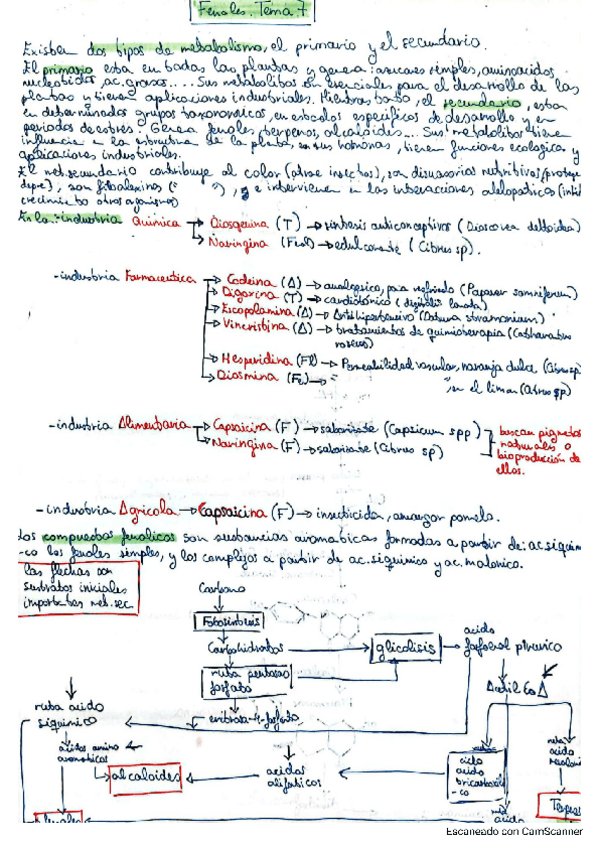 Fenoles. Tema 7
Existen dos tipos de metabolismo, el primario y el secundario.
El primario esta en todas las plantas y genera: azucares simples, aminoacidos,
nucleotidos, ac. grasos..... Sus metabolitos son esenciales para el desarrollo de las
plantas y tienen aplicaciones industriales. Mientras tanto, el secundario, esta
en determinados grupos taxonomicos, en estados especificos de desarrollo y en
periodos de estres. Genera fenoles, terpenos, alcaloides.... Sus metabolitos tienen
influencia en la estructura de la planta, en sus hormonas, tienen funciones ecologicas y
aplicaciones industriales.
El met. secundario contribuye al color (atrae insectos), son disuasorios nutritivos (protege
), son fitoalexinas ( " " ), e intervienen en las interacciones alelopaticas (
crecimiento otros organismos)
En la: industria Quimica → Diosgenina (T) → sintesis anticonceptivos (Dioscorea deltoidea)
→ Naringina (Fl) → edulcorante (Citrus sp).
- industria Farmaceutica → Codeina (A) → analgesico, para resfriado (Papaver somniferum)
→ Digoxina (T) → cardiotónico (digitalis lanata)
→ Escopolamina (A) → Antihipertensivo (Datura stramonium)
→ Vincristina (A) → tratamientos de quimioterapia (Catharantus
roseus)
→ Hesperidina (Fl) → Permeabilidad vascular, naranja dulce (Citrus sp
→ Diosmina (Fl) → " , en el limon (Citrus sp)
- industria Alimentaria → Capsaicina (F) → saborizante (Capsicum spp)
→ Naringina (F) → saborizante (Citrus sp)
buscan pigmetos
naturales o
bioproducción de
ellos.
- industria Agricola → Capsaicina (F) → insecticida, amargor pomelo.
Los compuestos fenolicos son sustancias aromaticas formadas a partir de: ac. siquimi
-co los fenoles simples, y los complejos a partir de ac. siquimico y ac. malonico.
las flechas son
sustratos iniciales
importantes met. sec
Carbono
Fotosintesis
Carbohidratos
glicolisis
acido
fosfoenol piruvico
ruta pentosa
fosfato
Acetil CoA
eritrosa-4-fosfato
ruta acido
siquimico
acidos amino
aromaticos
alcaloides
acidos
alifaticos
ciclo
acido
tricarboxili
-co
ruta
acido
malonic
Terpe
acido
fenoles
Escaneado con CamScanner